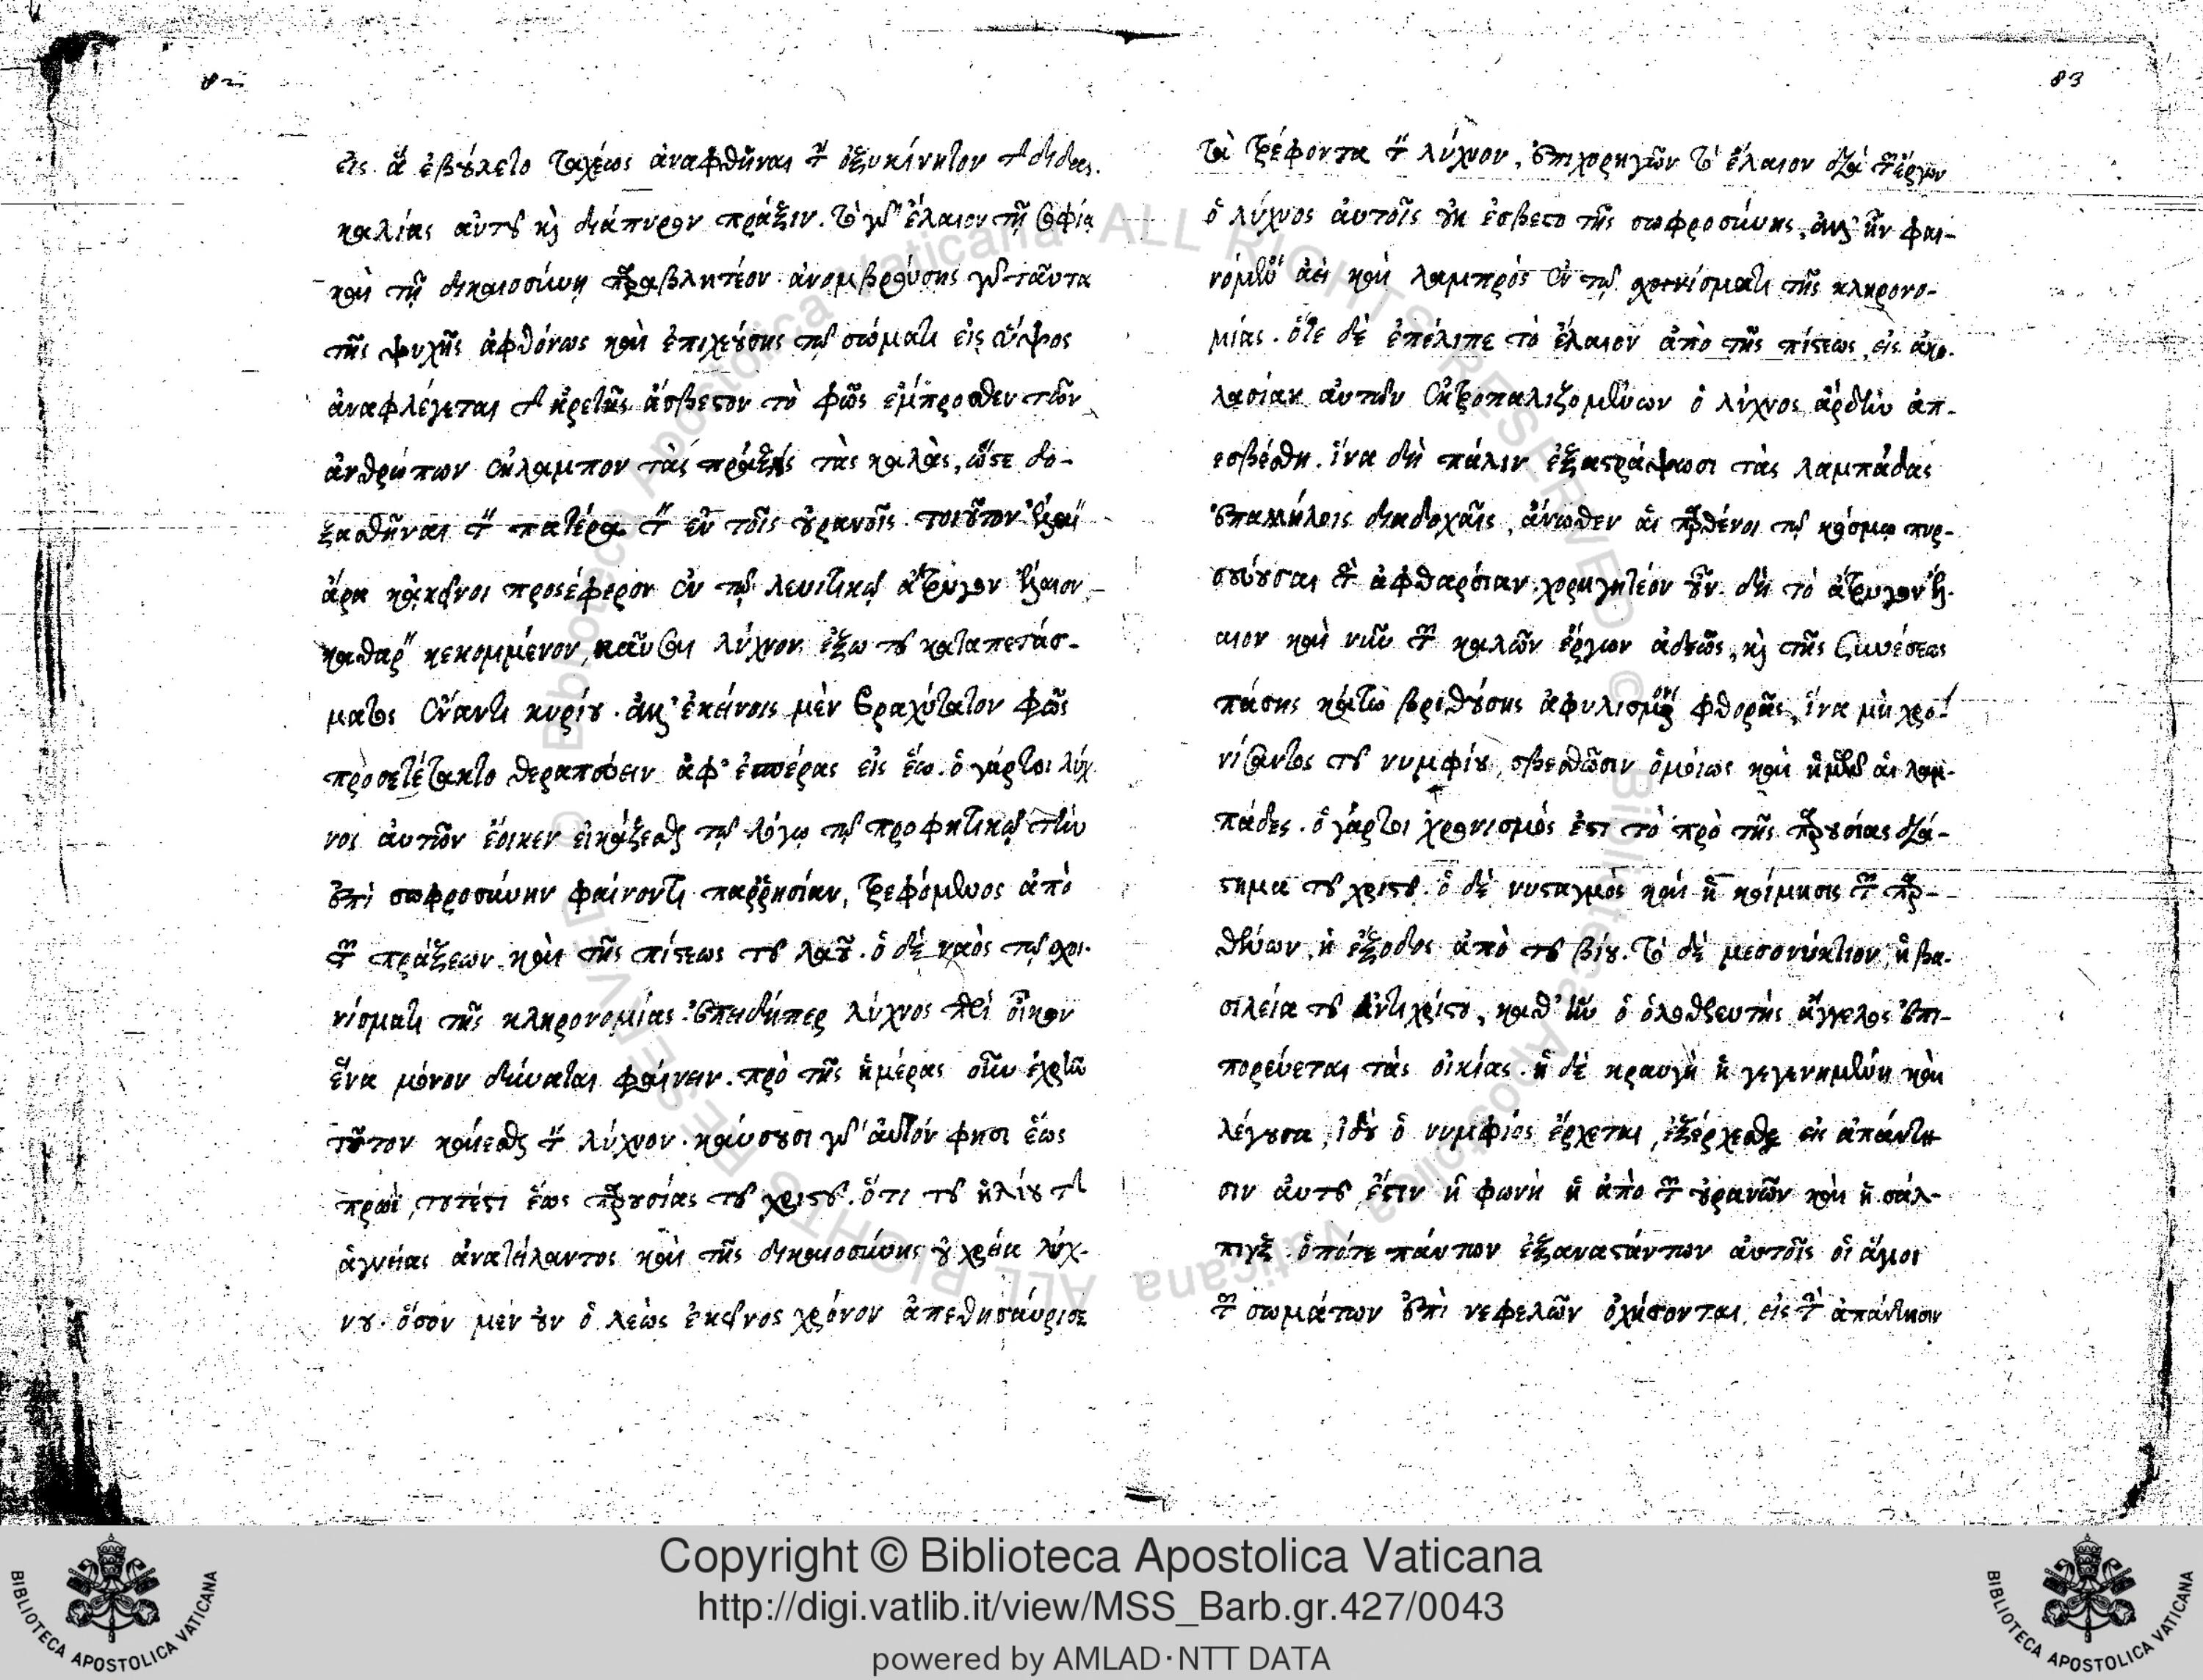 82
εἰς ἃ ἐβούλετο ταχέως ἀναφθῆναι τὴν ὀξυκίνητον τῆς διδασ-
καλίας αὐτοῦ καὶ διάπυρον πρᾶξιν. τὸ γὰρ ἔλαιον τῇ σοφίᾳ
καὶ τῇ δικαιοσύνῃ παραβλητέον. ἀνομβρούσης γὰρ ταῦτα
τῆς ψυχῆς ἀφθόνως καὶ ἐπιχεούσης τῷ σώματι εἰς ὕψος
ἀναφλέγεται τῆς ἀρετῆς ἄσβεστον τὸ φῶς ἔμπροσθεν τῶν
ἀνθρώπων ἐκλάμπον τὰς πράξεις τὰς καλὰς, ὥστε δο-
ξασθῆναι τὸν πατέρα τὸν ἐν τοῖς οὐρανοῖς. τοιοῦτον ἔλαιον
ἄρα κἀκεῖνοι προσέφερον ἐν τῷ λευιτικῷ ἄτρυγον ἔλαιον
καθαρὸν κεκομμένον, καῦσαι λύχνον ἔξω τοῦ καταπετάσ-
ματος ἔναντι κυρίου. ἀλλ' ἐκείνοις μὲν βραχύτατον φῶς
προσετέτακτο θεραπεύειν ἀφ' ἑσπέρας εἰς ἕω. ὁ γάρ τοι λύχ-
νος αὐτῶν ἔοικεν εἰκάζεσθαι τῷ λόγῳ τῷ προφητικῷ τὴν
ἐπὶ σωφροσύνην φαίνοντι παρρησίαν, τρεφόμενος ἀπὸ
τῶν πράξεων καὶ τῆς πίστεως τοῦ λαοῦ. ὁ δὲ ναὸς τῷ σχοι-
νίσματι τῆς κληρονομίας. ἐπειδήπερ λύχνος περὶ οἶκον
ἕνα μόνον δύναται φαίνειν. πρὸ τῆς ἡμέρας οὖν ἐχρῆν
τοῦτον καίεσθαι τὸν λύχνον. καύσουσι γὰρ αὐτόν φησι ἕως
πρωῒ, τουτέστι ἕως παρουσίας τοῦ χριστοῦ. ὅτι τοῦ ἡλίου τῆς
ἁγνείας ἀνατείλαντος καὶ τῆς δικαιοσύνης οὐ χρεία λύχ-
νου. ὅσον μὲν οὖν ὁ λεὼς ἐκεῖνος χρόνον ἀπεθησαύρισε
83
τὰ τρέφοντα τὸν λύχνον, ἐπιχορηγῶν τὸ ἔλαιον διὰ τῶν ἔργων
ὁ λύχνος αὐτοῖς οὐκ ἐσβέστο τῆς σωφροσύνης, ἀλλ' ἦν φαι-
νόμενος ἀεὶ καὶ λαμπρὸς ἐν τῷ σχοινίσματι τῆς κληρονο-
μίας. ὅτε δὲ ἐπέλιπε τὸ ἔλαιον ἀπὸ τῆς πίστεως, εἰς ἀκο-
λασίαν αὐτῶν ἐκτροπαλιζομένων ὁ λύχνος ἄρδην ἀπ-
εσβέσθη. ἵνα δὴ πάλιν ἐξαστράψωσι τὰς λαμπάδας
ἐπαλλήλοις διαδοχαῖς, ἄνωθεν αἱ παρθένοι τῷ κόσμῳ πυρ-
σεύουσαι τὴν ἀφθαρσίαν. χορηγητέον οὖν δὴ τὸ ἄτρυγον ἔλ-
αιον καὶ νῦν τῶν καλῶν ἔργων ἀδεῶς, καὶ τῆς συνέσεως
πάσης κάτω βριθούσης ἀφυλισμένον φθορᾶς, ἵνα μὴ χρο-
νίσαντος τοῦ νυμφίου, σβεσθῶσιν ὁμοίως καὶ ἡμῶν αἱ λαμ-
πάδες. ὁ γάρ τοι χρονισμός ἐστι τὸ πρὸ τῆς παρουσίας διά-
στημα τοῦ χριστοῦ. ὁ δὲ νυσταγμὸς καὶ ἡ κοίμησις τῶν παρ-
θένων, ἡ ἔξοδος ἀπὸ τοῦ βίου. τὸ δὲ μεσονύκτιον, ἡ βα-
σιλεία τοῦ ἀντιχρίστου, καθ' ἣν ὁ ὀλοθρευτὴς ἄγγελος ἐπι-
πορεύεται τὰς οἰκίας. ἡ δὲ κραυγὴ ἡ γεγενημένη καὶ
λέγουσα, ἰδοὺ ὁ νυμφίος ἔρχεται, ἐξέρχεσθε εἰς ἀπάντη-
σιν αὐτοῦ, ἔστιν ἡ φωνὴ ἡ ἀπὸ τῶν οὐρανῶν καὶ ἡ σάλ-
πιγξ. ὁπότε πάντων ἐξαναστάντων αὐτοῖς οἱ ἅγιοι
τῶν σωμάτων ἐπὶ νεφελῶν ὀχήσονται, εἰς τὴν ἀπάντησιν
Copyright © Biblioteca Apostolica Vaticana
http://digi.vatlib.it/view/MSS_Barb.gr.427/0043
powered by AMLAD·NTT DATA
BIBLIOTECA APOSTOLICA VATICANA
BIBLIOTECA APOSTOLICA VATICANA